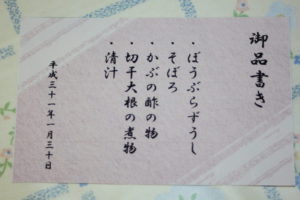 御品書き
・ぼうぶらずうし
・そぼろ
・かぶの酢の物
・切干大根の煮物
・清汁
平成三十一年一月三十日